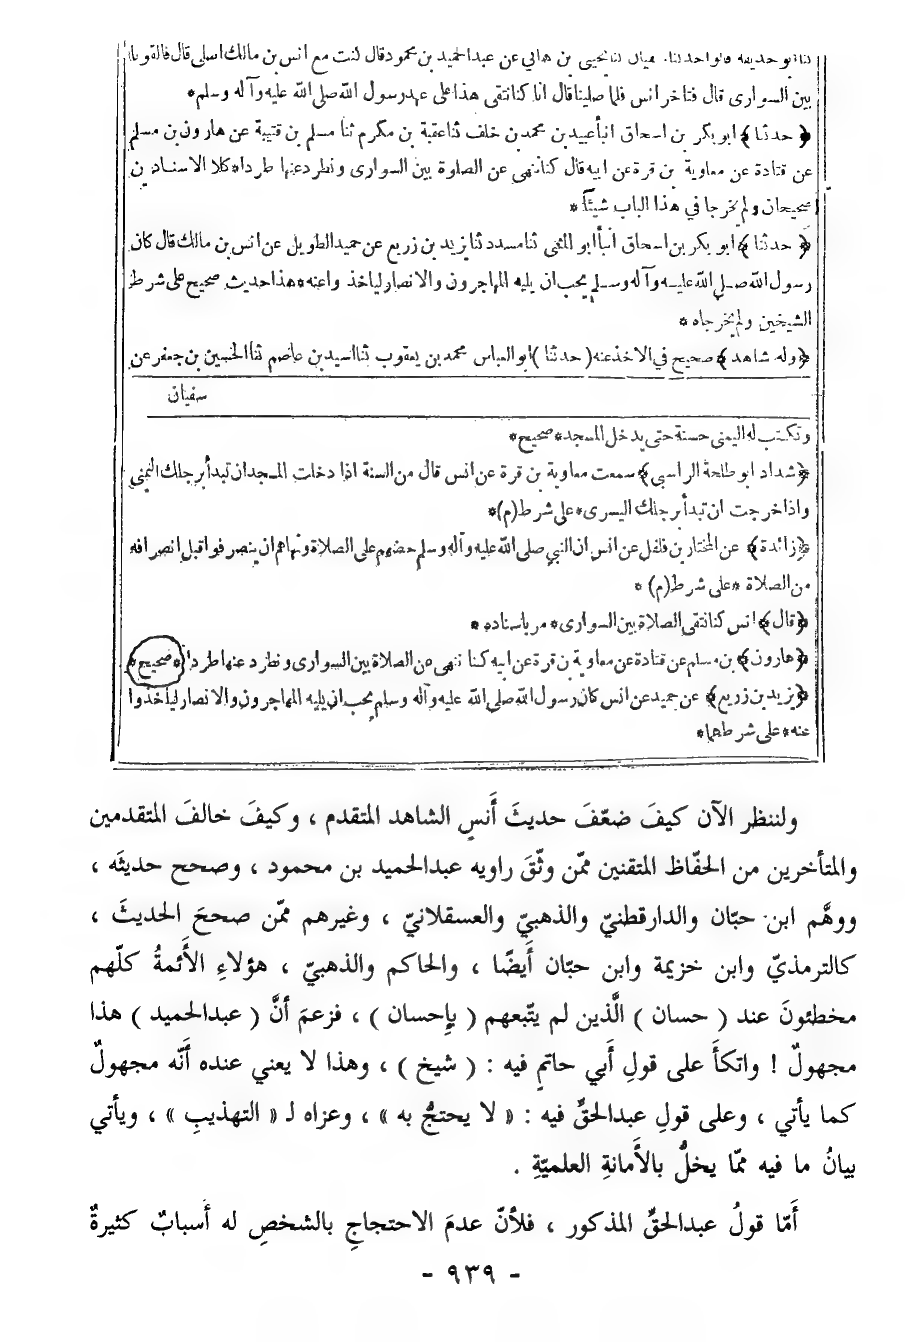 ثنا ابو حذيفة قالوا حدثنا سفيان ثنا يحيى بن هاني عن عبدالحميد بن محمود قال كنت مع انس بن مالك اصلى قال فالقونا
بين السوارى قال فتاخر انس فلما صلينا قال انا كنا نتقى هذا على عهد رسول الله صلى الله عليه وآله وسلم *
﴿ حدثنا ﴾ ابو بكر بن اسحاق انبأ عبيد بن محمد بن خلف ثنا عقبة بن مكرم ثنا مسلم بن قتيبة عن هارون بن مسلم
عن قتادة عن معاوية بن قرة عن ابيه قال كنا ننهى عن الصلوة بين السوارى ونطرد عنها طردا * كلا الاسنادين
صحيحان ولم يخرجا في هذا الباب شيئا *
﴿ حدثنا ﴾ ابو بكر بن اسحاق انبأ ابو المثنى ثنا مسدد ثنا يزيد بن زريع عن حميد الطويل عن انس بن مالك قال كان
رسول الله صلى الله عليه وآله وسلم يحب ان يليه المهاجرون والانصار لياخذوا عنه * هذا حديث صحيح على شرط
الشيخين ولم يخرجاه *
﴿ وله شاهد ﴾ صحيح في الاخذ عنه ( حدثنا ) ابو العباس محمد بن يعقوب ثنا اسيد بن عاصم ثنا الحسين بن جعفر عن
سفيان
وتكتب له اليمنى حسنة حتى يدخل المسجد * صحيح *
﴿ شداد ابو طلحة الراسبي ﴾ سمعت معاوية بن قرة عن انس قال من السنة اذا دخلت المسجد ان تبدأ برجلك اليمنى
واذا خرجت ان تبدأ برجلك اليسرى * على شرط (م) *
﴿ زائدة ﴾ عن المختار بن فلفل عن انس ان النبي صلى الله عليه وآله وسلم حضهم على الصلاة ونهاهم ان ينصرفوا قبل انصرافه
من الصلاة * على شرط (م) *
﴿ قال ﴾ انس كنا نتقى الصلاة بين السوارى * مر باسناده *
﴿ هارون ﴾ بن مسلم عن قتادة عن معاوية بن قرة عن ابيه كنا ننهى عن الصلاة بين السوارى ونطرد عنها طردا * صحيح *
﴿ يزيد بن زريع ﴾ عن حميد عن انس كان رسول الله صلى الله عليه وآله وسلم يحب ان يليه المهاجرون والانصار لياخذوا
عنه * على شرطهما *
ولننظر الآن كيفَ ضعّفَ حديثَ أَنسٍ الشاهد المتقدم ، وكيفَ خالفَ المتقدمين
والمتأخرين من الحفّاظ المتقنين ممّن وثّقَ راويه عبدالحميد بن محمود ، وصحح حديثَه ،
ووهَّم ابن حبّان والدارقطنيّ والذهبيّ والعسقلانيّ ، وغيرهم ممّن صححَ الحديثَ ،
كالترمذيّ وابن خزيمة وابن حبّان أَيضًا ، والحاكم والذهبيّ ، هؤلاءِ الأَئمةُ كلّهم
مخطئونَ عند ( حسان ) الَّذين لم يتّبعهم ( بإحسان ) ، فزعمَ أنَّ ( عبدالحميد ) هذا
مجهولٌ ! واتكأَ على قولِ أَبي حاتمٍ فيه : ( شيخ ) ، وهذا لا يعني عنده أَنّه مجهولٌ
كما يأتي ، وعلى قولِ عبدالحقِّ فيه : « لا يحتجُّ به » ، وعزاه لـ « التهذيبِ » ، ويأتي
بيانُ ما فيه ممّا يخلُّ بالأَمانةِ العلميّةِ .
أَمّا قولُ عبدالحقِّ المذكور ، فلأنّ عدمَ الاحتجاجِ بالشخصِ له أَسبابٌ كثيرةٌ
- ٩٣٩ -